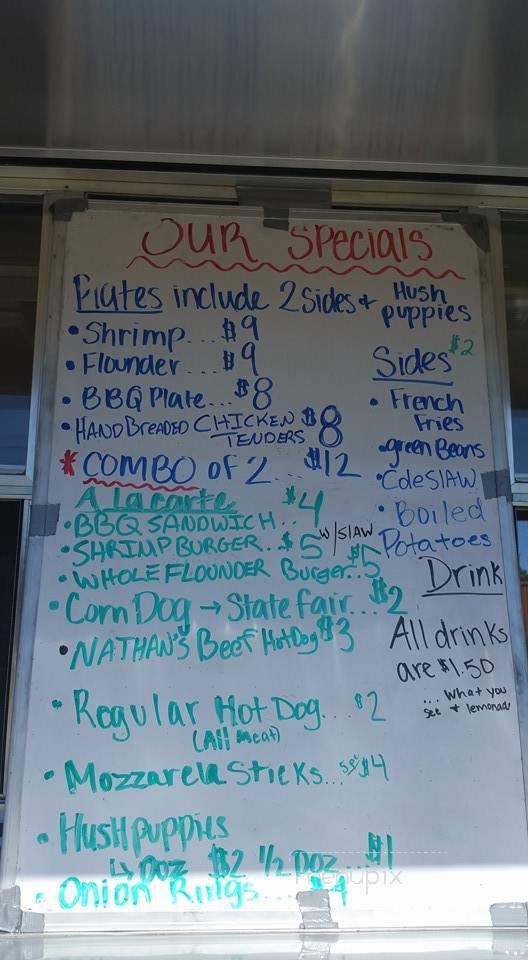 OUR Specials
Plates include 2 Sides + Hush puppies
• Shrimp... $9
• Flounder... $9
• BBQ Plate... $8
• HAND BREADED CHICKEN TENDERS $8
* COMBO of 2... $12
Sides $2
• French Fries
• green Beans
• ColeSLAW
• Boiled Potatoes
A la carte
• BBQ SANDWICH.. $4
• SHRIMP BURGER.. $5 w/SLAW
• WHOLE FLOUNDER Burger.. $5
• Corn Dog → State fair... $2
• NATHAN'S Beef HotDog $3
• Regular Hot Dog.... $2
(All Meat)
• Mozzarela Sticks... $4
• Hushpuppies
↳ Doz $2 1/2 Doz... $1
• Onion Rings.... $4
Drink
All drinks
are $1.50
... What you
see + lemonade
menupix